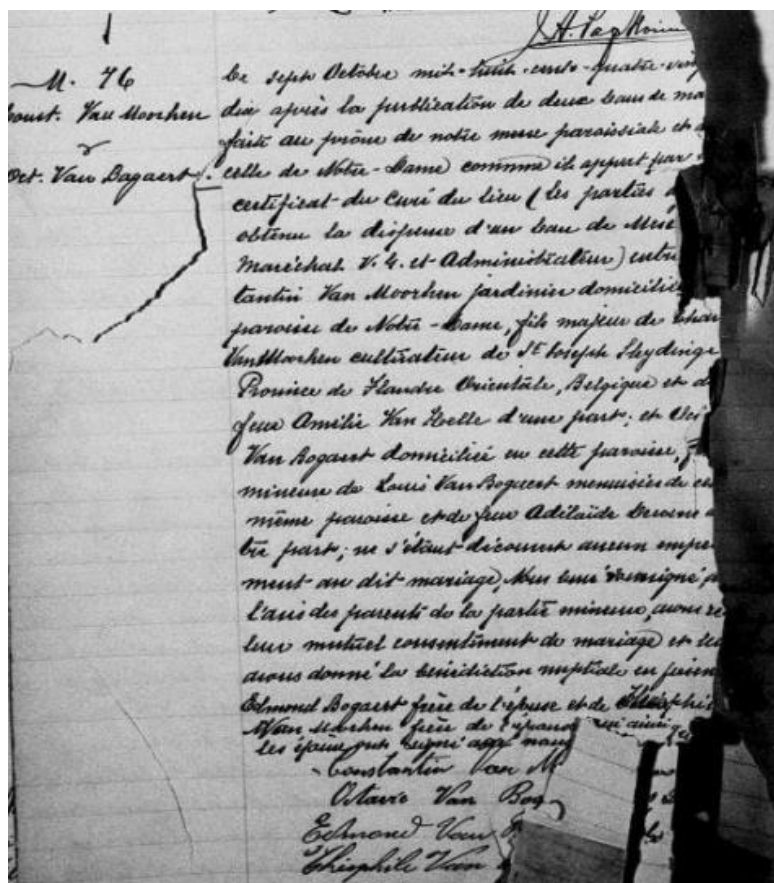 M. 76
Const. Van Moorhen
&
Oct. Van Bogaert
Le sept Octobre mil-huit-cent-quatre-ving
dix après la publication de deux bans de ma
faite au prône de notre messe paroissiale et
celle de Notre-Dame comme il appert par
certificat du Curé du lieu (les parties
obtenu la dispense d'un ban de Mess
Maréchal V. G. et Administrateur) entre
tantin Van Moorhen jardinier domicilié
paroisse de Notre-Dame, fils majeur de Char
Van Moorhen cultivateur de St Joseph Sleydinge
Province de Flandre Orientale, Belgique et de
feue Amélie Van Helle d'une part; et Oct
Van Bogaert domiciliée en cette paroisse, f
mineure de Louis Van Bogaert menuisier de ce
même paroisse et de feue Adélaïde d
tre part; ne s'étant découvert aucun empe
ment au dit mariage, Nous curé soussigné, d
l'avis des parents de la partie mineure, avons re
leur mutuel consentement de mariage et leu
avons donné la bénédiction nuptiale en présen
Edmond Bogaert frère de l'épouse et de Théophil
Van Moorhen frère de l'époux qui ainsi que
les époux ont signé avec nous
Constantin Van M
Octavie Van Bog
Edmond Van
Théophile Van